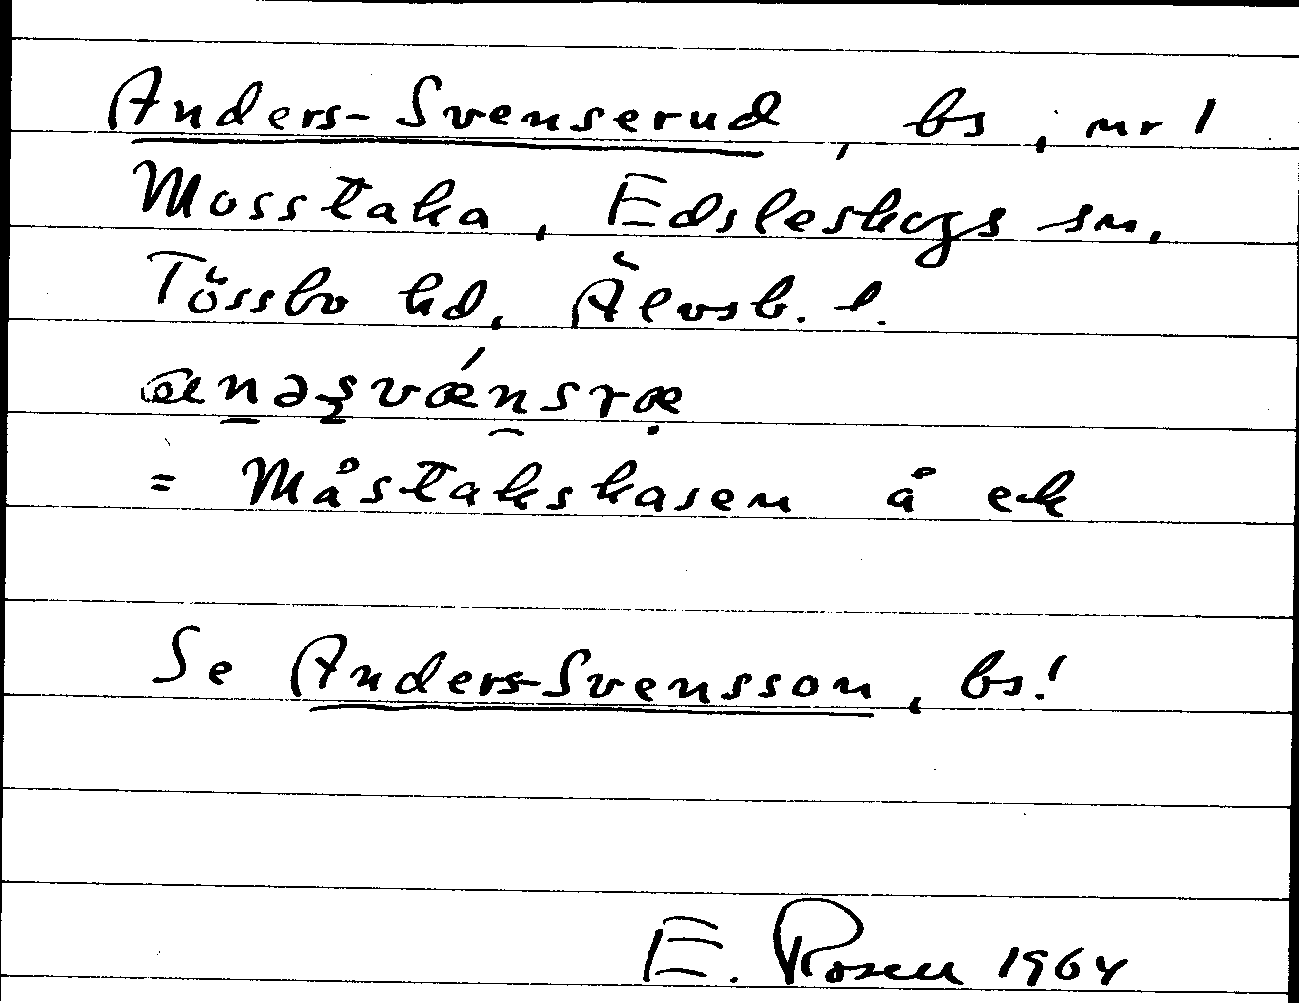 Anders-Svenserud, bs, nr 1
Mosstaka, Edsleskogs sn,
Tössbo hd, Älvsb. l.
anəșvǽnsræ
= Måstakskasen å ek
Se Anders-Svensson, bs!
E. Rosen 1964